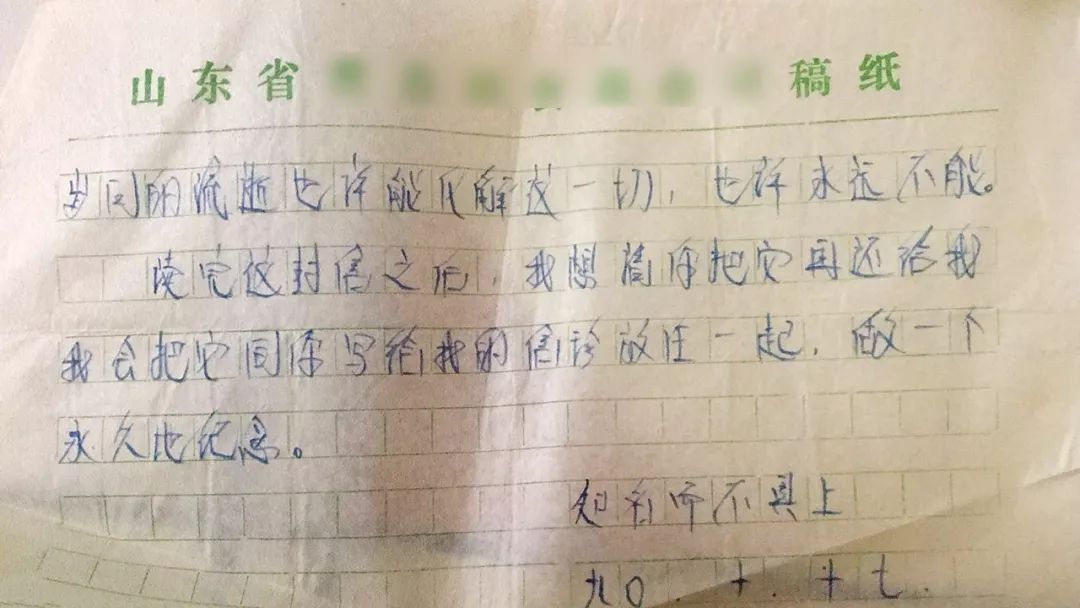 山东省 稿纸
岁月的流逝也许能化解这一切，也许永远不能。
读完这封信之后，我想请你把它再还给我
我会把它同你写给我的信珍放在一起，做一个
永久地纪念。
知名而不具上
九〇.十.十七.